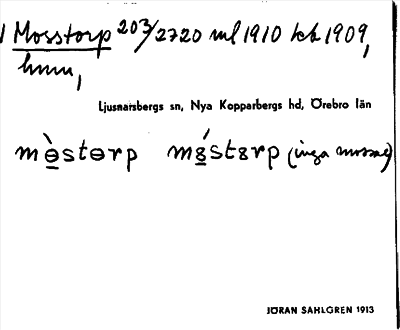 Mosstorp 203/2720 ml 1910 kk 1909,
hmn,
Ljusnarsbergs sn, Nya Kopparbergs hd, Örebro län
mɵ̀stɵrp mɵ́stɵrp (inga mossar)
JÖRAN SAHLGREN 1913